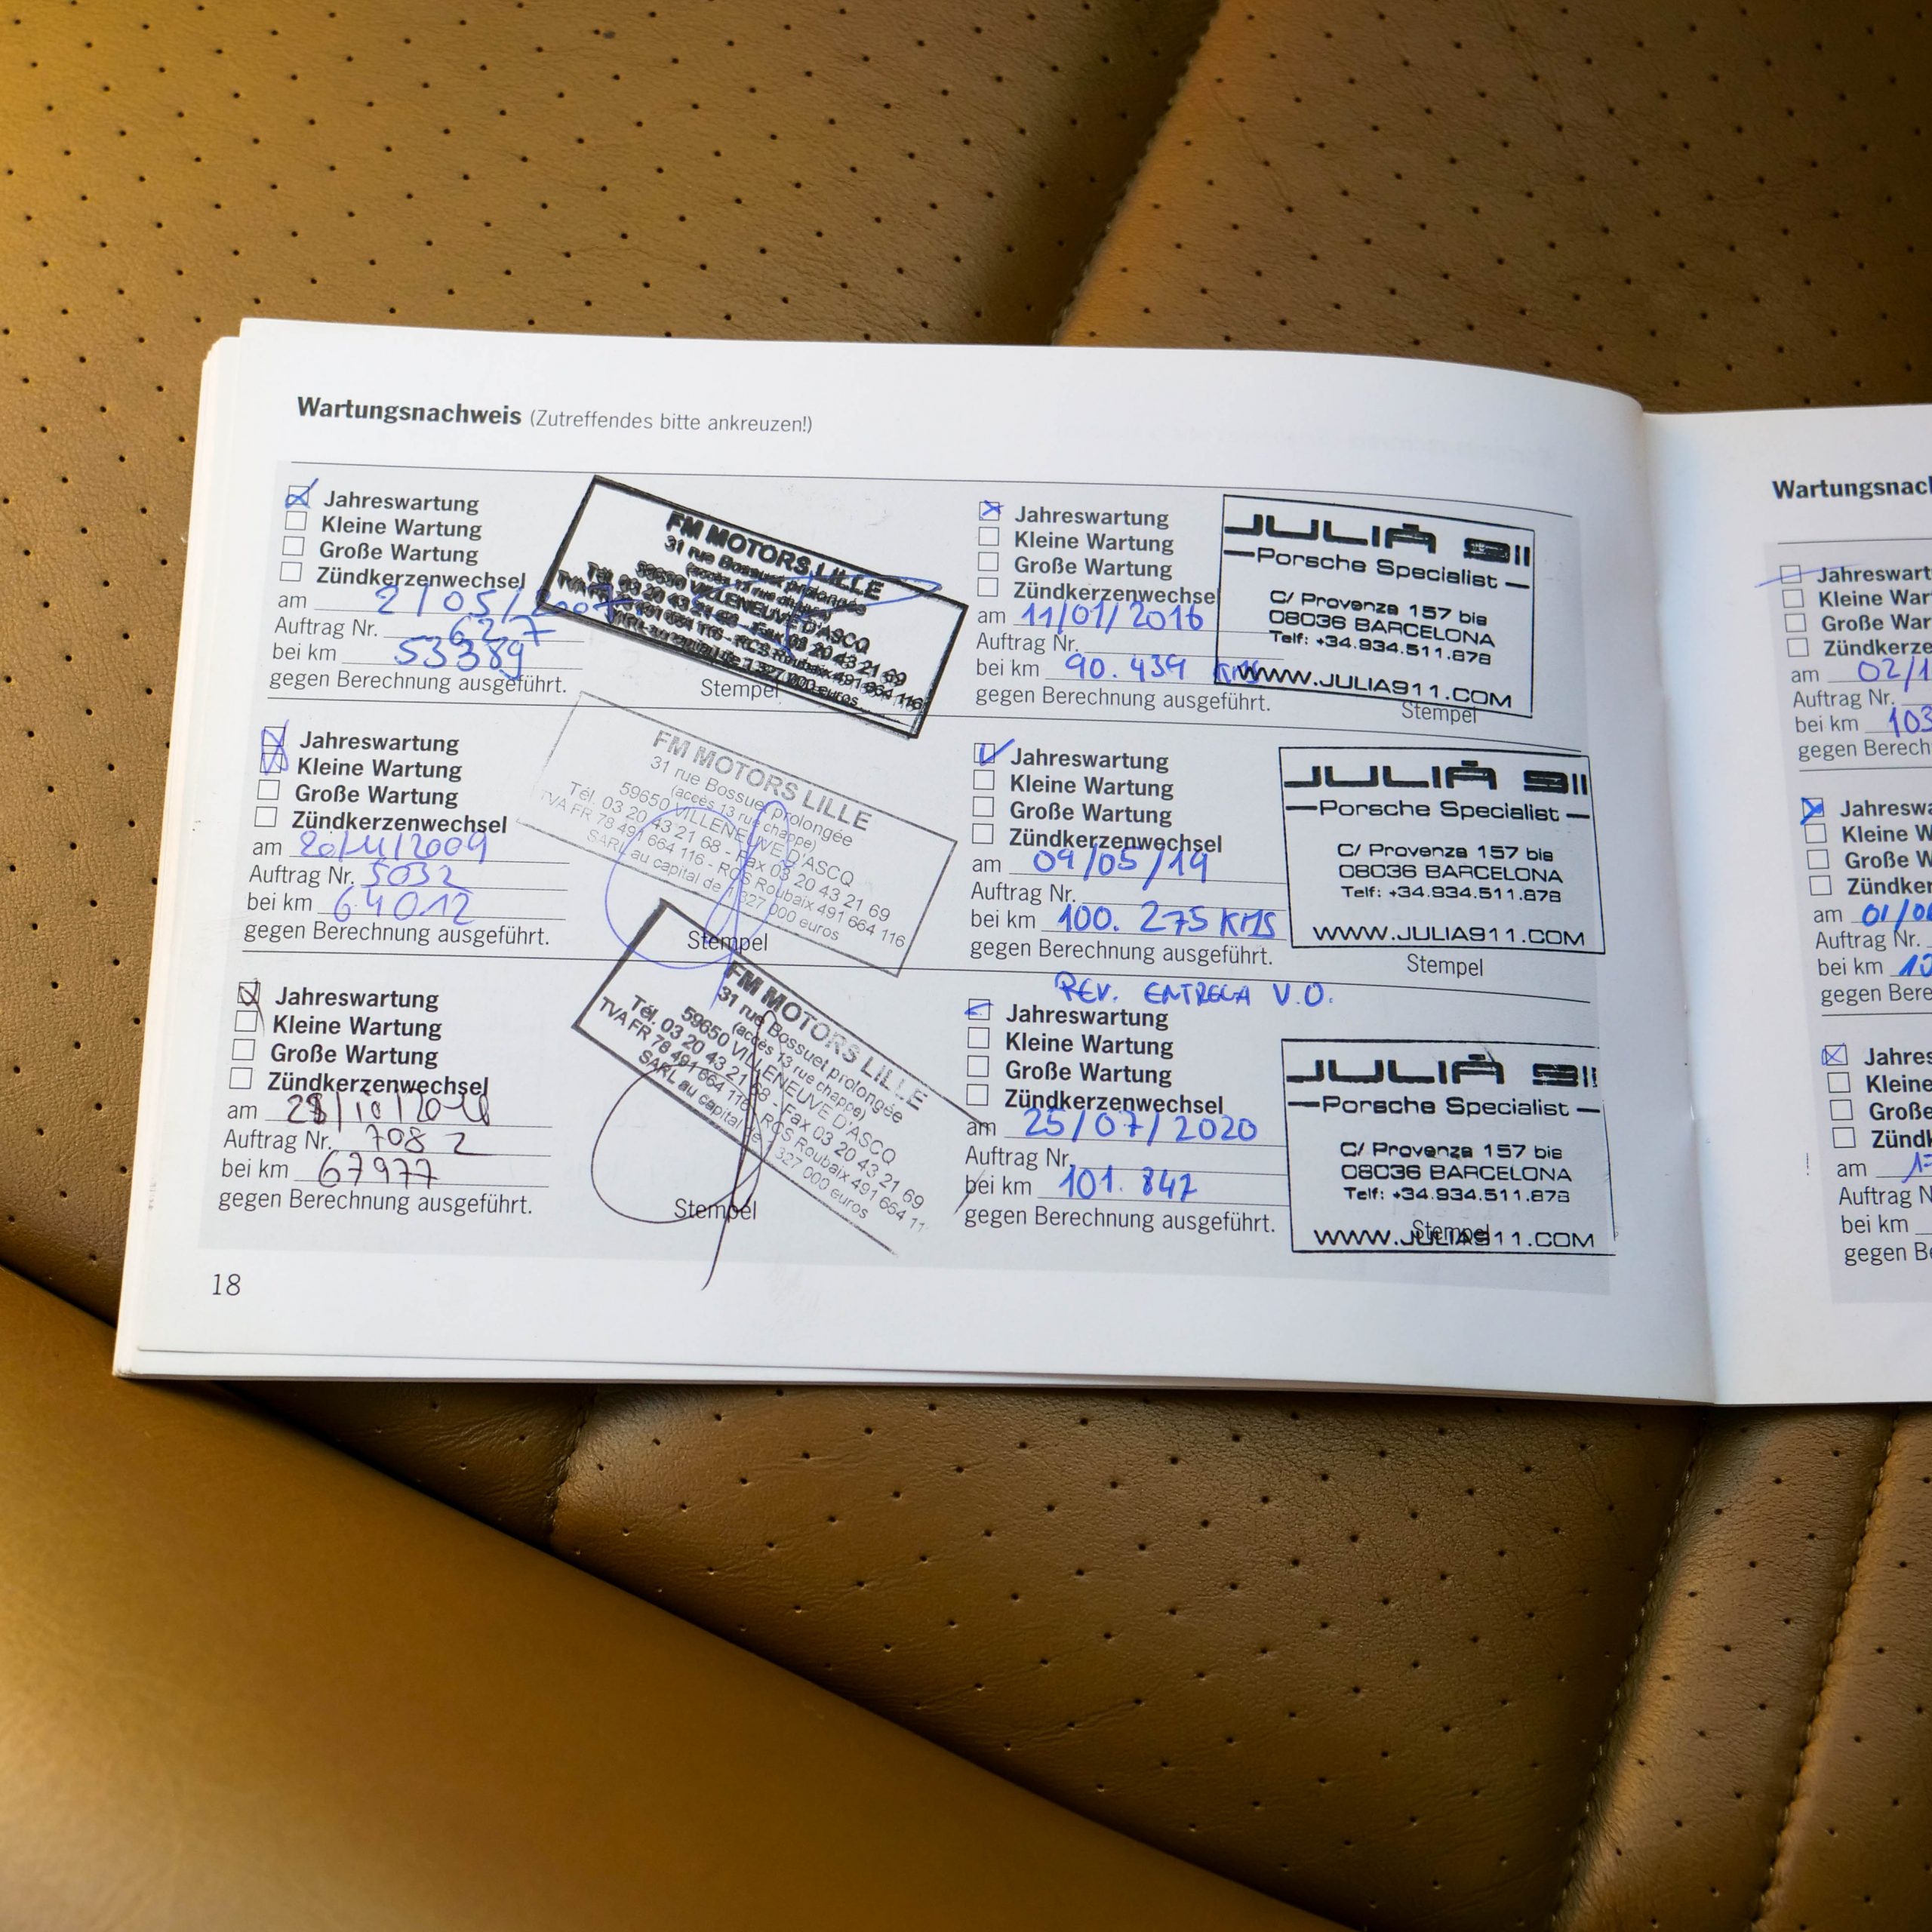 Wartungsnachweis (Zutreffendes bitte ankreuzen!)
Jahreswartung
Kleine Wartung
Große Wartung
Zündkerzenwechsel
am
Auftrag Nr. 627
bei km 53389
gegen Berechnung ausgeführt.
FM MOTORS LILLE
31 rue Bossuet prolongée
(accès 13 rue chappe)
59650 VILLENEUVE D'ASCQ
Tél. 03 20 43 21 68 - Fax 03 20 43 21 69
TVA FR 78 491 664 116 - RCS Roubaix 491 664 116
SARL au capital de 1 327 000 euros
Stempel
Jahreswartung
Kleine Wartung
Große Wartung
Zündkerzenwechsel
am 20/11/2009
Auftrag Nr. 5032
bei km 64012
gegen Berechnung ausgeführt.
FM MOTORS LILLE
31 rue Bossuet prolongée
(accès 13 rue chappe)
59650 VILLENEUVE D'ASCQ
Tél. 03 20 43 21 68 - Fax 03 20 43 21 69
TVA FR 78 491 664 116 - RCS Roubaix 491 664 116
SARL au capital de 1 327 000 euros
Stempel
Jahreswartung
Kleine Wartung
Große Wartung
Zündkerzenwechsel
am
Auftrag Nr. 7082
bei km 67977
gegen Berechnung ausgeführt.
FM MOTORS LILLE
31 rue Bossuet prolongée
(accès 13 rue chappe)
59650 VILLENEUVE D'ASCQ
Tél. 03 20 43 21 68 - Fax 03 20 43 21 69
TVA FR 78 491 664 116 - RCS Roubaix 491 664 11
SARL au capital de 1 327 000 euros
Stempel
18
Jahreswartung
Kleine Wartung
Große Wartung
Zündkerzenwechsel
am 11/01/2016
Auftrag Nr.
bei km 90.439 KMS
gegen Berechnung ausgeführt.
JULIÀ 911
Porsche Specialist
C/ Provenza 157 bis
08036 BARCELONA
Telf: +34.934.511.878
WWW.JULIA911.COM
Stempel
Jahreswartung
Kleine Wartung
Große Wartung
Zündkerzenwechsel
am 09/05/19
Auftrag Nr.
bei km 100.275 KMS
gegen Berechnung ausgeführt.
JULIÀ 911
Porsche Specialist
C/ Provenza 157 bis
08036 BARCELONA
Telf: +34.934.511.878
WWW.JULIA911.COM
Stempel
REV. ENTREGA V.O.
Jahreswartung
Kleine Wartung
Große Wartung
Zündkerzenwechsel
am 25/07/2020
Auftrag Nr.
bei km 101.847
gegen Berechnung ausgeführt.
JULIÀ 911
Porsche Specialist
C/ Provenza 157 bis
08036 BARCELONA
Telf: +34.934.511.878
Stempel
WWW.JULIA911.COM
Wartungsnach
Jahreswart
Kleine War
Große War
Zündkerze
am 02/1
Auftrag Nr.
bei km 103
gegen Berech
Jahreswa
Kleine W
Große W
Zündker
am 01/0
Auftrag Nr.
bei km 10
gegen Bere
Jahres
Kleine
Große
Zündk
am
Auftrag N
bei km
gegen Be